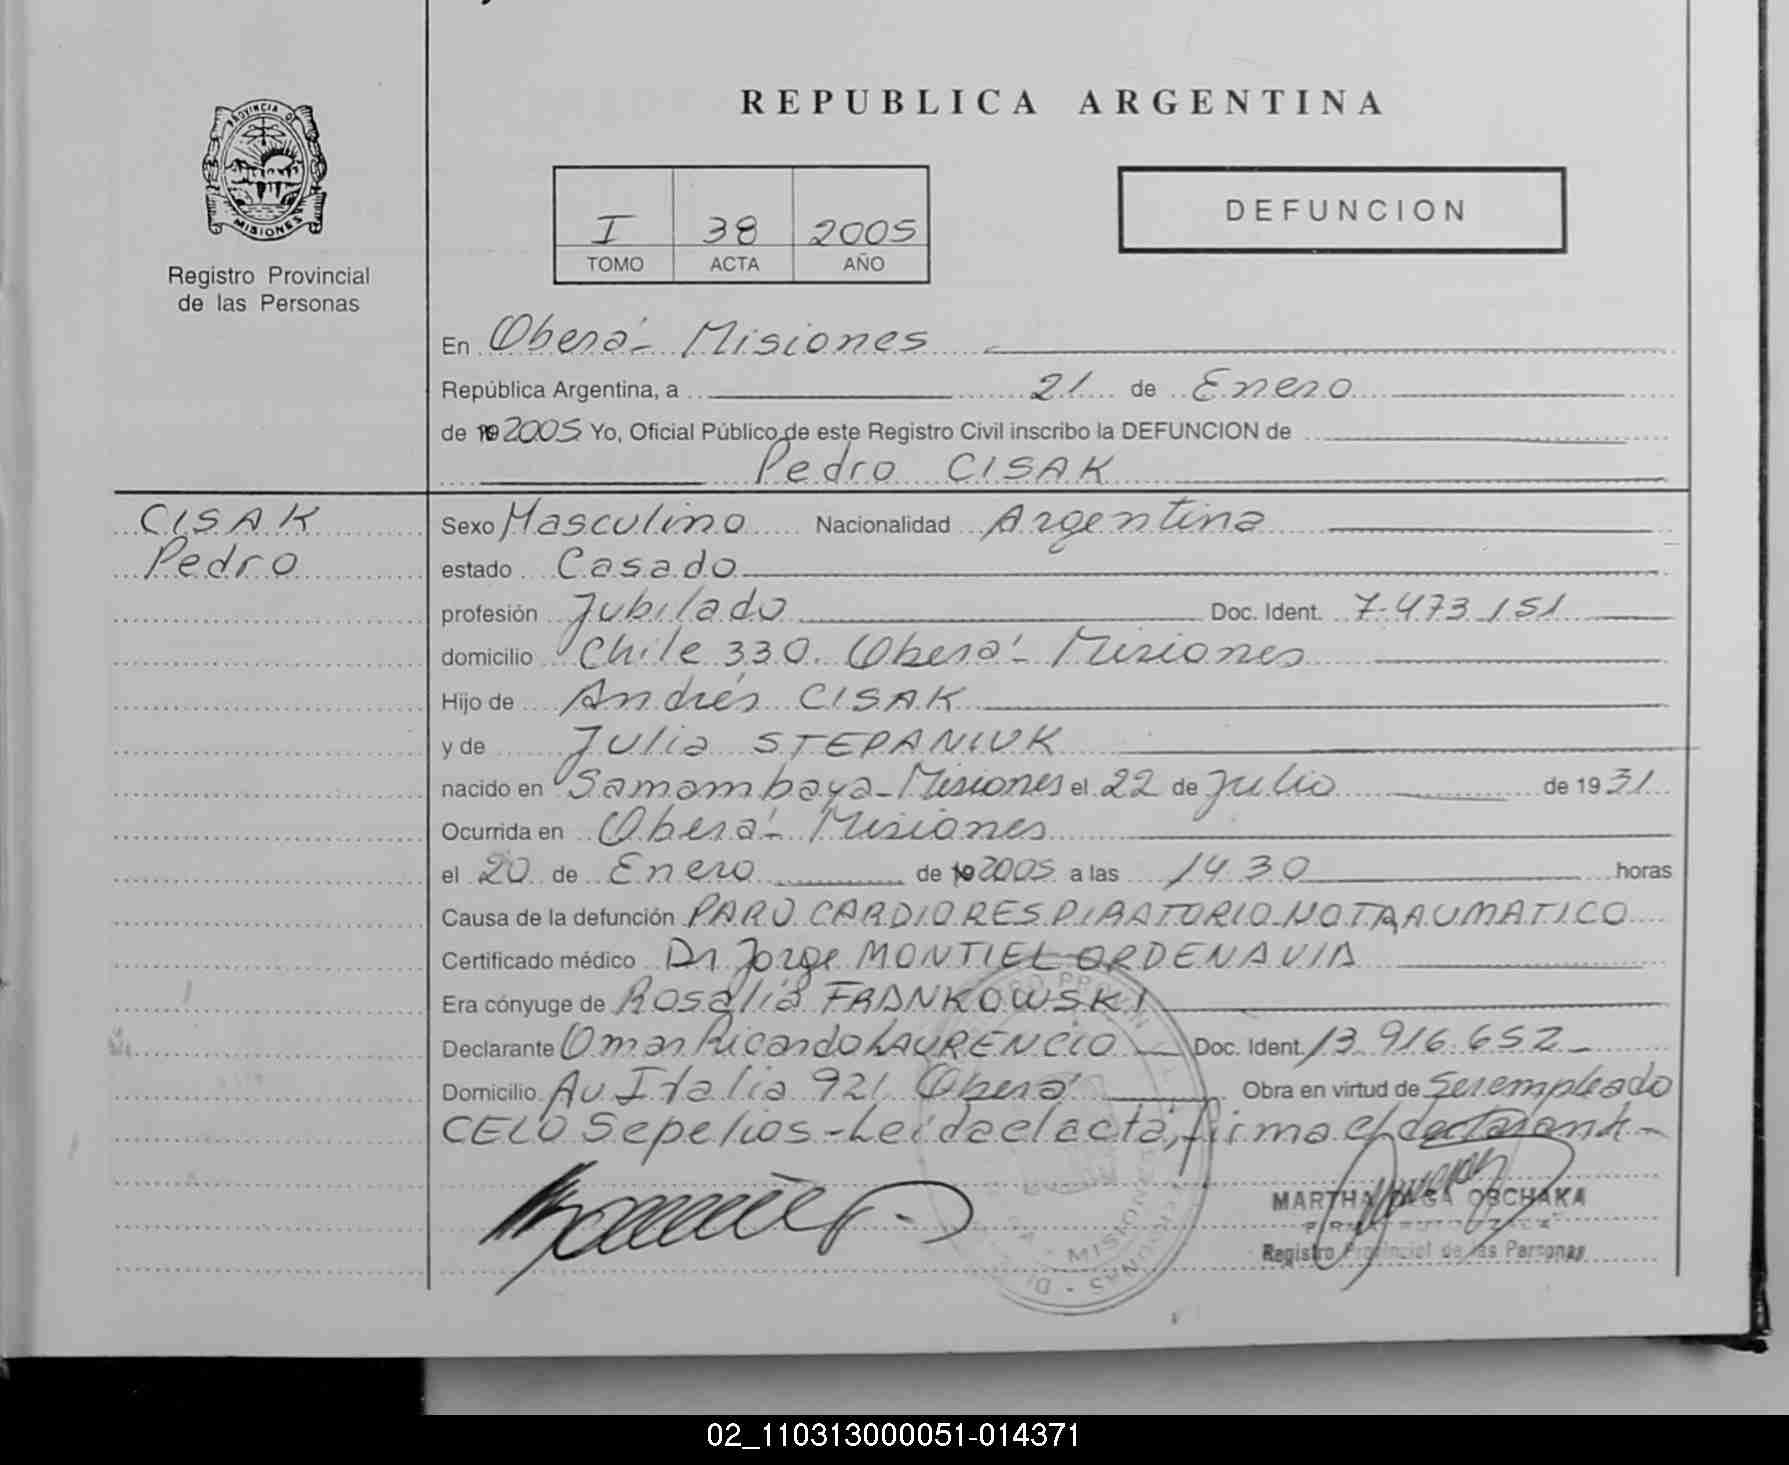 REPUBLICA ARGENTINA
PROVINCIA DE
MISIONES
Registro Provincial
de las Personas
I 38 2005
TOMO ACTA AÑO
DEFUNCION
En Oberá - Misiones
República Argentina, a 21 de Enero
de 19 2005 Yo, Oficial Público de este Registro Civil inscribo la DEFUNCION de
Pedro CISAK
CISAK
Pedro
Sexo Masculino Nacionalidad Argentina
estado Casado
profesión Jubilado Doc. Ident. 7.473.151
domicilio Chile 330. Oberá - Misiones
Hijo de Andrés CISAK
y de Julia STEPANIUK
nacido en Samambaya - Misiones el 22 de Julio de 1931
Ocurrida en Oberá - Misiones
el 20 de Enero de 19 2005 a las 14 30 horas
Causa de la defunción PARO CARDIORESPIRATORIO NO TRAUMATICO
Certificado médico Dr Jorge MONTIEL ORDENAVIA
Era cónyuge de Rosalia FRANKOWSKI
Declarante Omar Ricardo LAURENCIO Doc. Ident. 13.916.652
Domicilio Av Italia 921 Oberá Obra en virtud de ser empleado
CELO Sepelios - Leída el acta, firma el declarante -
MARTHA OLGA OBCHAKA
Registro Provincial de las Personas
MISIONES
02_110313000051-014371